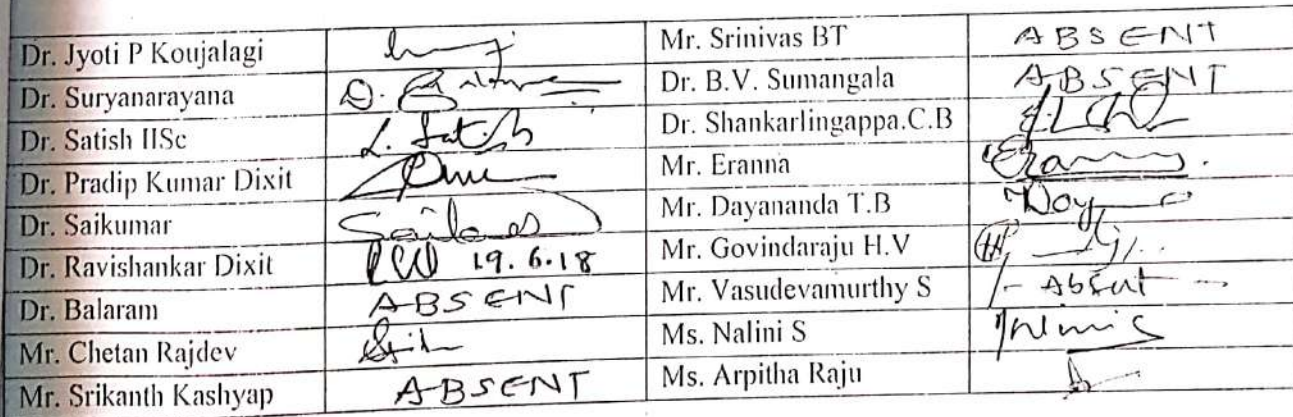 Dr. Jyoti P Koujalagi Mr. Srinivas BT ABSENT
Dr. Suryanarayana Dr. B.V. Sumangala ABSENT
Dr. Satish IISc L. Satish Dr. Shankarlingappa.C.B
Dr. Pradip Kumar Dixit Mr. Eranna Eranna
Dr. Saikumar Mr. Dayananda T.B
Dr. Ravishankar Dixit 19.6.18 Mr. Govindaraju H.V
Dr. Balaram ABSENT Mr. Vasudevamurthy S - Absent -
Mr. Chetan Rajdev Ms. Nalini S Nalini S
Mr. Srikanth Kashyap ABSENT Ms. Arpitha Raju